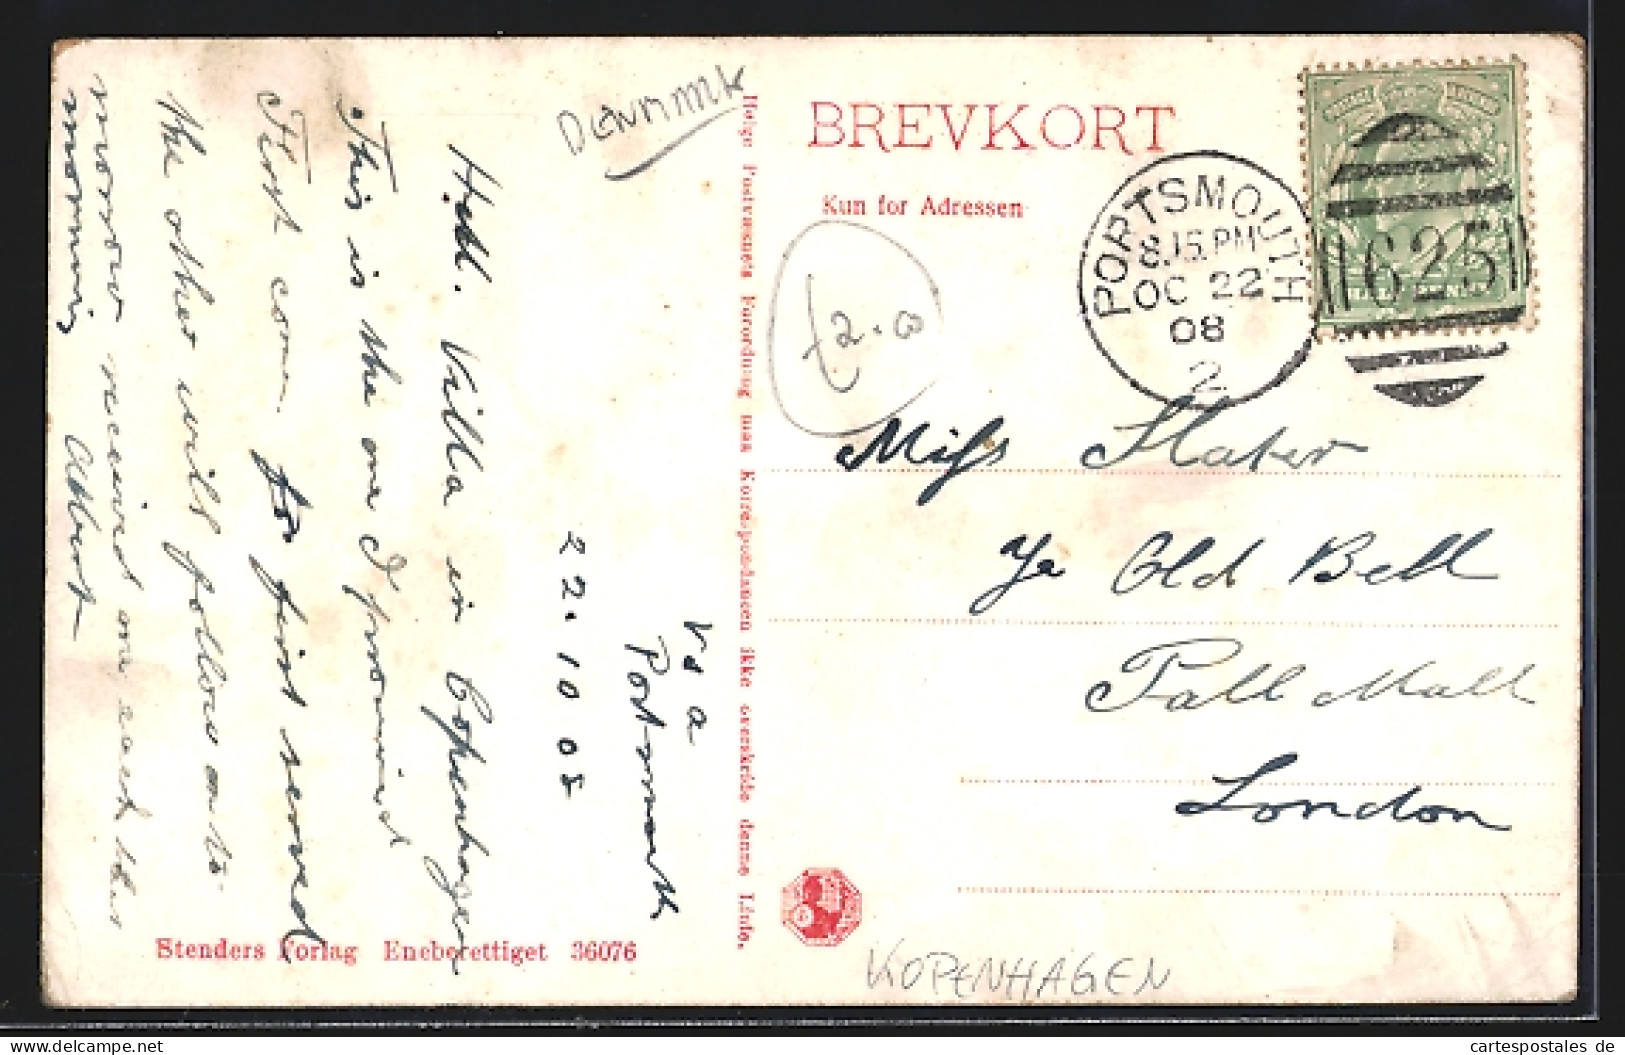 Denmark
BREVKORT
Kun for Adressen
PORTSMOUTH
8.15 PM
OC 22
08
2
625
£2.0
Miſs Slater
Ye Old Bell
Pall Mall
London
V s a
Portsmouth
22.10.08
Hell. Villa in Copenhagen
This is the one I promised
First come for first served
The other will follow on to
morrow received on each this
morning
Albert
Helge Postvæsnets Forordning maa Korrespondancen ikke overskride denne Linie.
Stenders Forlag Eneberettiget 36076
KOPENHAGEN
cartespostales de
www.delcampe.net